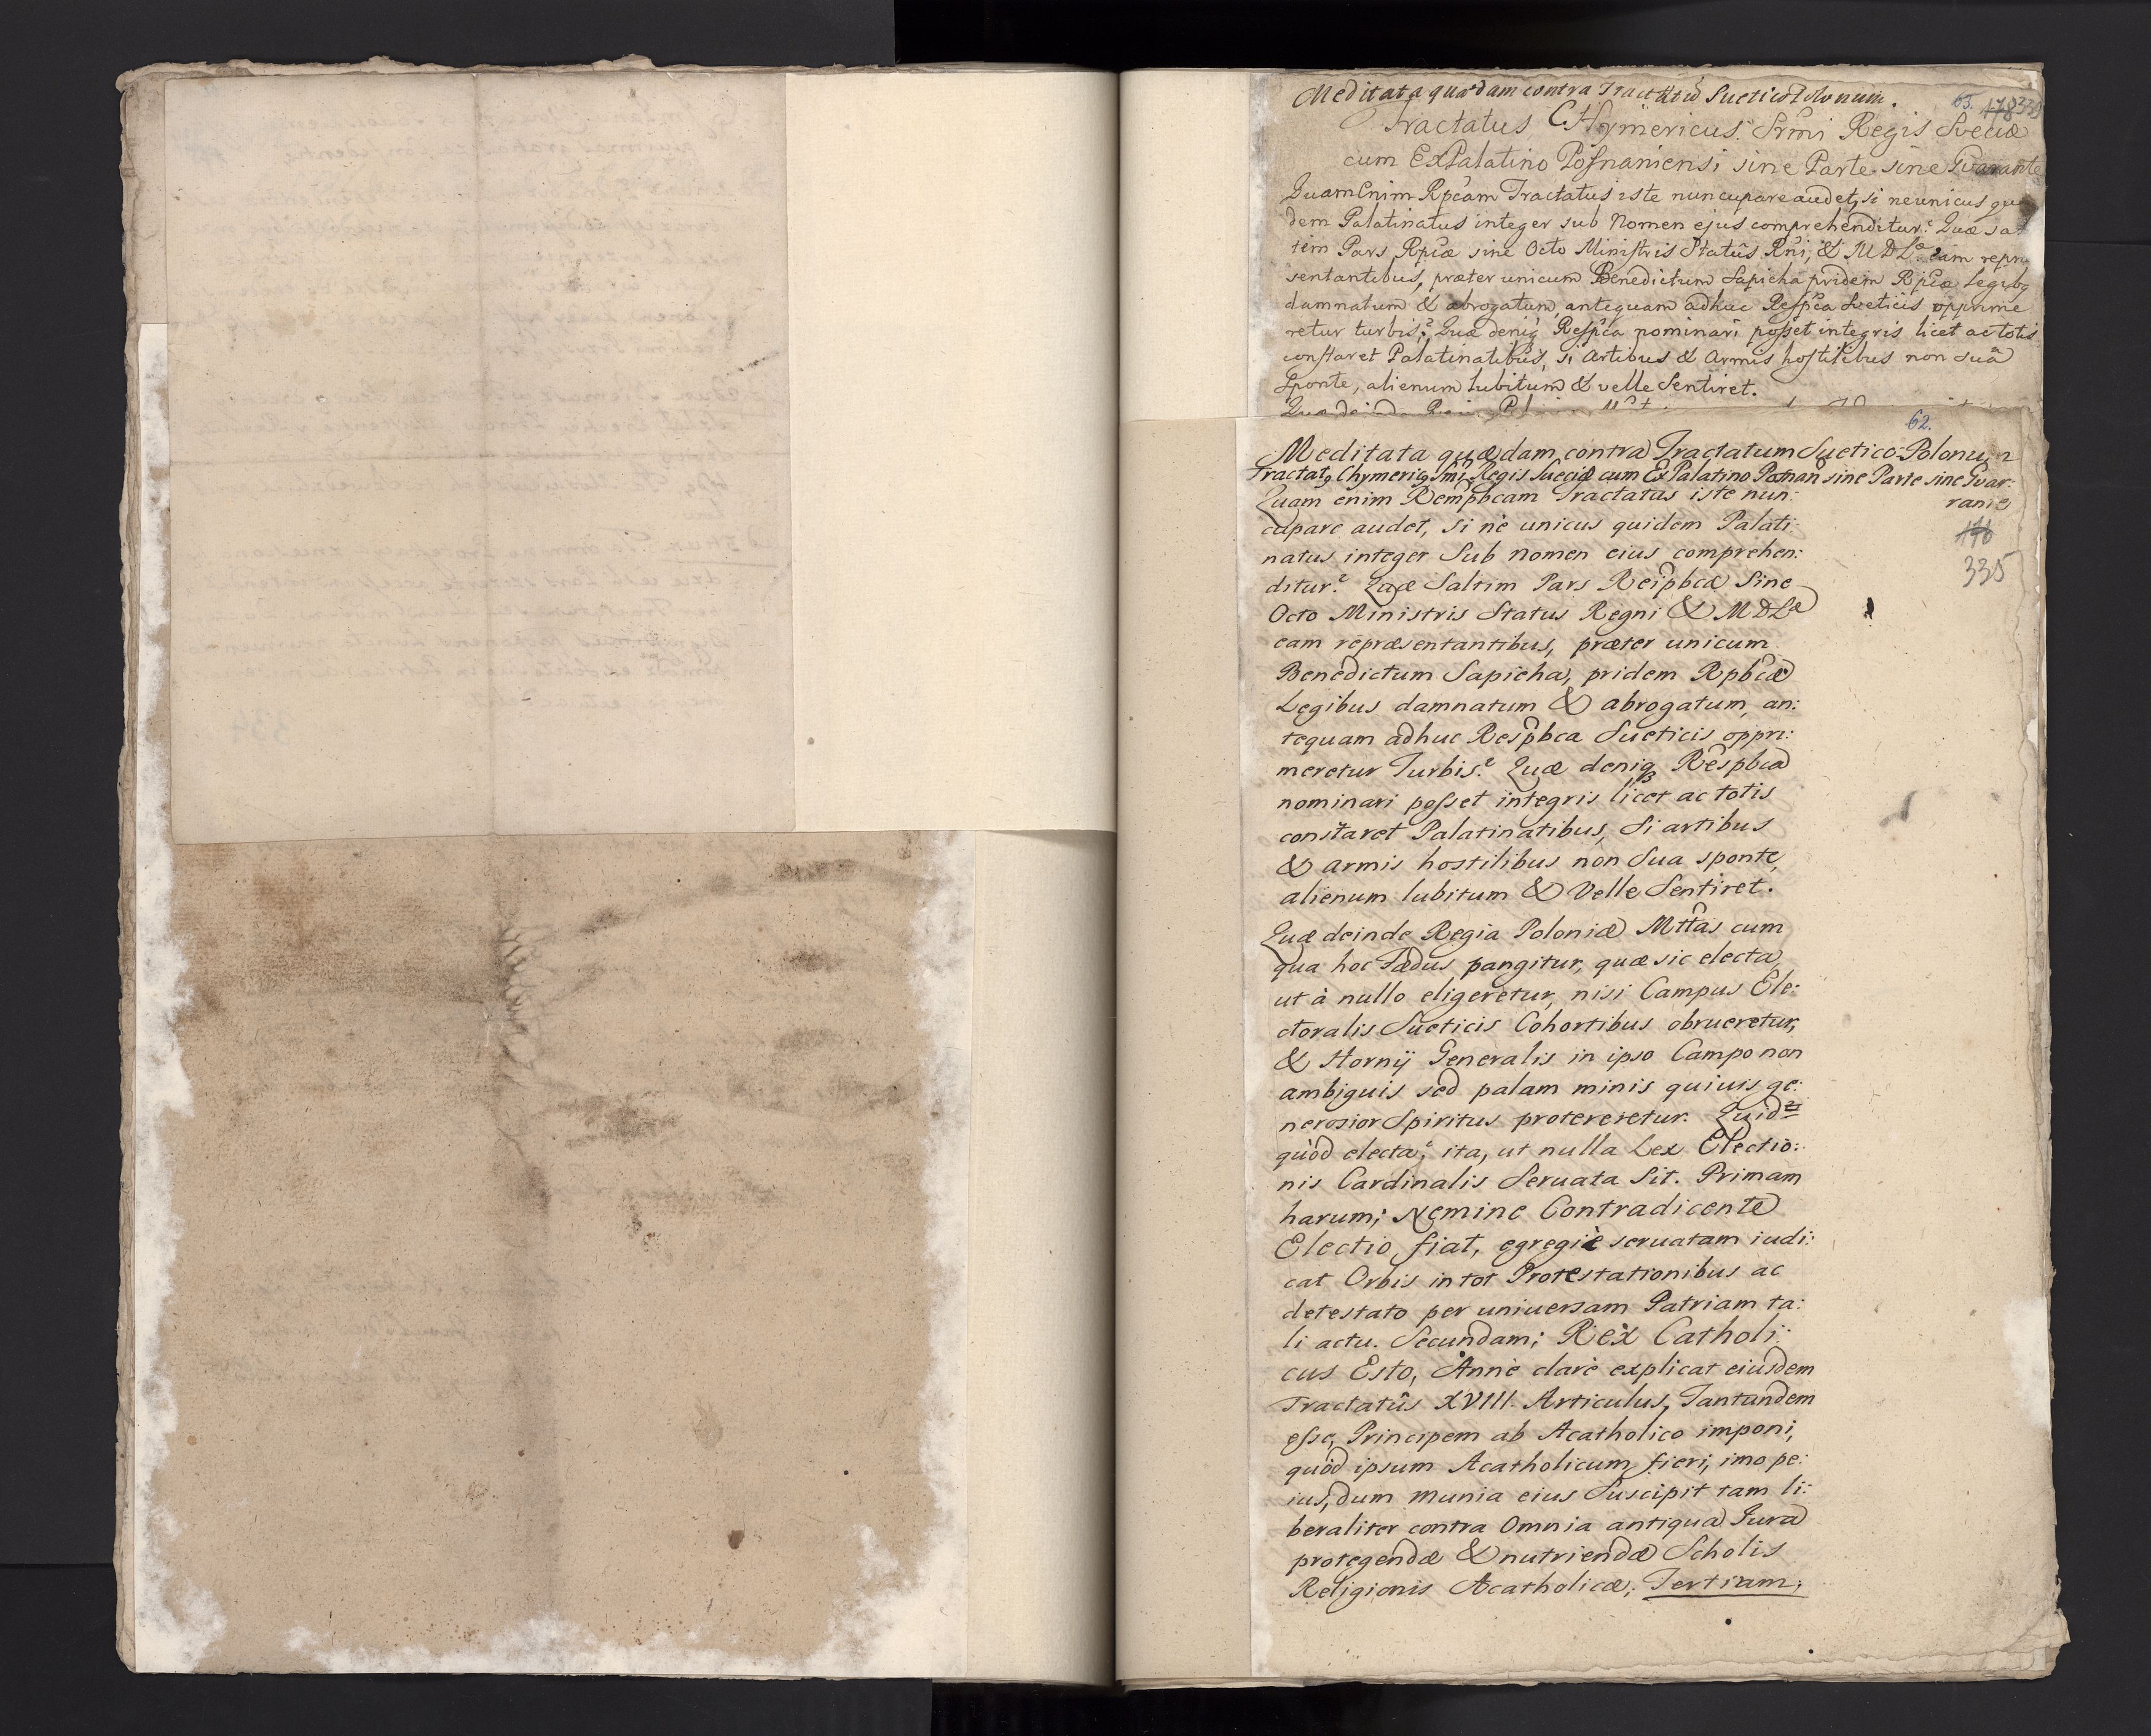 Meditata quædam contra Tractatũ SueticoPolonum.
65. 178 338
Tractatus CHymericus Srmi Regis Sveciæ
cum ExPalatino Posnaniensi sine Parte sine Gvarante
Quam Enim Rpcam Tractatus iste nuncupare audet, si ne unicus qui
dem Palatinatus integer sub Nomen ejus comprehenditur? Quæ sal
tem Pars Rpcæ sine Octo Ministris Statûs Rni, & MDLæ eam repræ
sentantibus, præter unicum Benedictum Sapieha pridem Rpcæ Legibq
damnatum & abrogatum, antequam adhuc Respca Sveticis opprime
retur turbis? Quæ deniq Respca nominari posset integris licet ac totis
constaret Palatinatibus, si Artibus & Armis hostilibus non suâ
sponte, alienum lubitum & velle Sentiret.
62.
Meditata quædam contra Tractatum Suetico-Polonu,
Tractatq Chymericq Smi Regis Sueciæ cum ExPalatino Posnan sine Parte sine Gvar:
rante
Quam enim Rempbcam Tractatus iste nun:
cupare audet, si nè unicus quidem Palati:
176
natus integer Sub nomen eius comprehen:
335
ditur? Quæ Saltim Pars Reipbcæ Sine
Octo Ministris Status Regni & MDLæ
eam repræsentantibus, præter unicum
Benedictum Sapieha, pridem Rpbcæ
Legibus damnatum & abrogatum, an:
tequam adhuc Respbca Sueticis oppri:
meretur Turbis? Quæ deniq Respbca
nominari posset integris licet ac totis
constaret Palatinatibus, Si artibus
& armis hostilibus non Sua sponte,
alienum lubitum & Velle Sentiret.
Quæ deinde Regia Poloniæ Mttas cum
qua hoc Fædus pangitur, quæ sic electa,
ut à nullo eligeretur, nisi Campus Ele:
ctoralis Sueticis Cohortibus obrueretur,
& Hornij Generalis in ipso Campo non
ambiguis sed palam minis quiuis ge:
nerosior Spiritus protereretur. Quid
quòd electa? ita, ut nulla Lex Electio:
nis Cardinalis Seruata Sit. Primam
harum; Nemine Contradicente
Electio fiat, egregiè seruatam iudi:
cat Orbis in tot Protestationibus ac
detestato per uniuersam Patriam ta:
li actu. Secundam; Rex Catholi:
cus Esto, Annè clarè explicat eiusdem
Tractatûs XVIII. Articulus, Tantundem
esse, Principem ab Acatholico imponi,
quòd ipsum Acatholicum fieri, imo pe:
ius, dum munia eius Suscipit tam li:
beraliter contra Omnia antiqua Jura
protegendæ & nutriendæ Scholis
Religionis Acatholicæ; Tertiam;